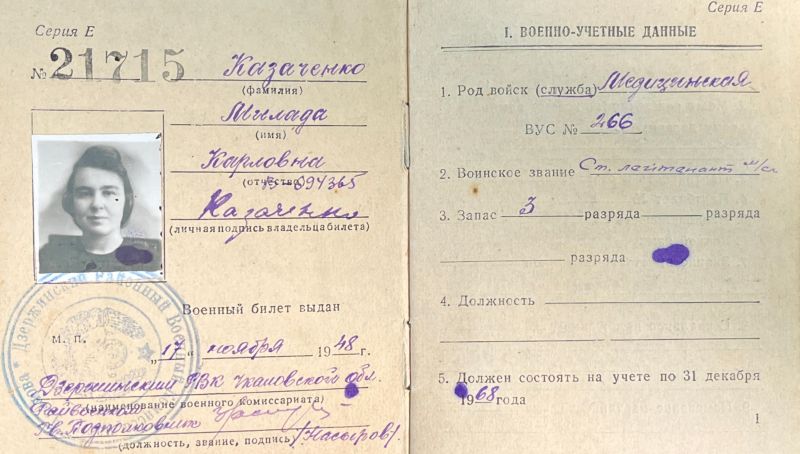 Серия Е
№ 21715
Казаченко
(фамилия)
Милада
(имя)
Карловна
(отчество)
094365
Казаченко
(личная подпись владельца билета)
Военный билет выдан
М. П.
„17" ноября 1948 г.
Дзержинский РВК Чкаловской обл.
(наименование военного комиссариата)
Райвоенком
Гв. Подполковник /Насыров/.
(должность, звание, подпись)
Дзержинский Районный Военный
Серия Е
I. ВОЕННО-УЧЕТНЫЕ ДАННЫЕ
1. Род войск (служба) Медицинская
ВУС № 266
2. Воинское звание Ст. лейтенант м/сл
3. Запас 3 разряда разряда
разряда
4. Должность
5. Должен состоять на учете по 31 декабря
1968 года
1